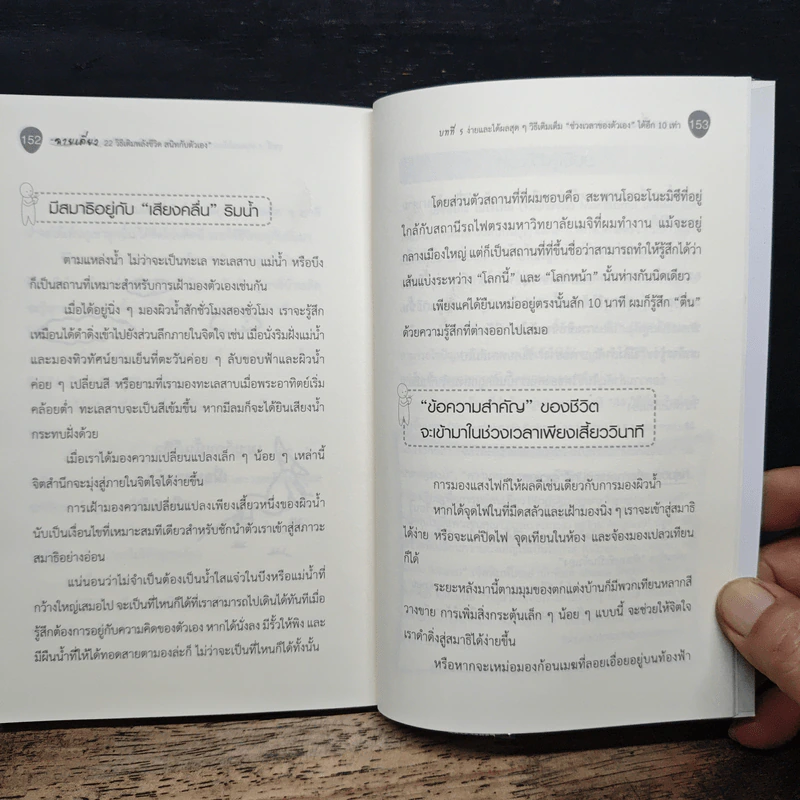 152 "ฉายเดี่ยว 22 วิธีเติมพลังชีวิต สนิทกับตัวเอง"
มีสมาธิอยู่กับ "เสียงคลื่น" ริมน้ำ
ตามแหล่งน้ำ ไม่ว่าจะเป็นทะเล ทะเลสาบ แม่น้ำ หรือบึง
ก็เป็นสถานที่เหมาะสำหรับการเฝ้ามองตัวเองเช่นกัน
เมื่อได้อยู่นิ่ง ๆ มองผิวน้ำสักชั่วโมงสองชั่วโมง เราจะรู้สึก
เหมือนได้ดำดิ่งเข้าไปยังส่วนลึกภายในจิตใจ เช่น เมื่อนั่งริมฝั่งแม่น้ำ
และมองทิวทัศน์ยามเย็นที่ตะวันค่อย ๆ ลับขอบฟ้าและผิวน้ำ
ค่อย ๆ เปลี่ยนสี หรือยามที่เรามองทะเลสาบเมื่อพระอาทิตย์เริ่ม
คล้อยต่ำ ทะเลสาบจะเป็นสีเข้มขึ้น หากมีลมก็จะได้ยินเสียงน้ำ
กระทบฝั่งด้วย
เมื่อเราได้มองความเปลี่ยนแปลงเล็ก ๆ น้อย ๆ เหล่านี้
จิตสำนึกจะมุ่งสู่ภายในจิตใจได้ง่ายขึ้น
การเฝ้ามองความเปลี่ยนแปลงเพียงเสี้ยวหนึ่งของผิวน้ำ
นับเป็นเงื่อนไขที่เหมาะสมทีเดียวสำหรับชักนำตัวเราเข้าสู่สภาวะ
สมาธิอย่างอ่อน
แน่นอนว่าไม่จำเป็นต้องเป็นน้ำใสแจ๋วในบึงหรือแม่น้ำที่
กว้างใหญ่เสมอไป จะเป็นที่ไหนก็ได้ที่เราสามารถไปเดินได้ทันทีเมื่อ
รู้สึกต้องการอยู่กับความคิดของตัวเอง หากได้นั่งลง มีรั้วให้พิง และ
มีผืนน้ำที่ให้ได้ทอดสายตามองล่ะก็ ไม่ว่าจะเป็นที่ไหนก็ได้ทั้งนั้น
บทที่ 5 ง่ายและได้ผลสุด ๆ วิธีเติมเต็ม "ช่วงเวลาของตัวเอง" ได้อีก 10 เท่า 153
โดยส่วนตัวสถานที่ที่ผมชอบคือ สะพานโอฉะโนะมิซึที่อยู่
ใกล้กับสถานีรถไฟตรงมหาวิทยาลัยเมจิที่ผมทำงาน แม้จะอยู่
กลางเมืองใหญ่ แต่ก็เป็นสถานที่ที่ขึ้นชื่อว่าสามารถทำให้รู้สึกได้ว่า
เส้นแบ่งระหว่าง "โลกนี้" และ "โลกหน้า" นั้นห่างกันนิดเดียว
เพียงแค่ได้ยืนเหม่ออยู่ตรงนั้นสัก 10 นาที ผมก็รู้สึก "ตื่น"
ด้วยความรู้สึกที่ต่างออกไปเสมอ
"ข้อความสำคัญ" ของชีวิต
จะเข้ามาในช่วงเวลาเพียงเสี้ยววินาที
การมองแสงไฟก็ให้ผลดีเช่นเดียวกับการมองผิวน้ำ
หากได้จุดไฟในที่มืดสลัวและเฝ้ามองนิ่ง ๆ เราจะเข้าสู่สมาธิ
ได้ง่าย หรือจะแค่ปิดไฟ จุดเทียนในห้อง และจ้องมองเปลวเทียน
ก็ได้
ระยะหลังมานี้ตามมุมของตกแต่งบ้านก็มีพวกเทียนหลากสี
วางขาย การเพิ่มสิ่งกระตุ้นเล็ก ๆ น้อย ๆ แบบนี้ จะช่วยให้จิตใจ
เราดำดิ่งสู่สมาธิได้ง่ายขึ้น
หรือหากจะเหม่อมองก้อนเมฆที่ลอยเอื่อยอยู่บนท้องฟ้า